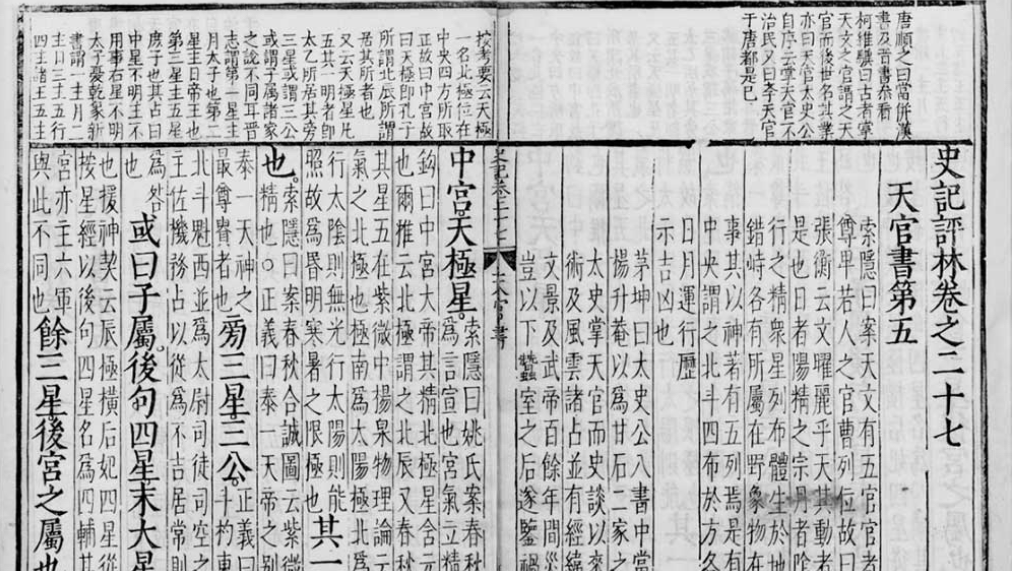 唐順之曰當併漢
書及晉書叅看
柯維騏曰古者掌
天文之官謂之天
官而後世名其業
亦曰天官太史公
自序云掌天官不
治民又曰斈天官
于唐都是已
史記評林卷之二十七
天官書第五
索隱曰案天文有五官官者
尊卑若人之官曹列位故曰
張衡云文曜麗乎天其動者
是也日者陽精之宗月者陰
行之精衆星列布體生於地
錯峙各有所屬在野象物在
事其以神著有五列焉是有
中央謂之北斗四布於方各
日月運行歷
示吉凶也
茅坤曰太史公八書中當
楊升菴以為甘石二家之
太史掌天官而史談以來
術及風雲諸占並有經緯
文景及武帝百餘年間災
豈以下蠶室之后遂鑒禍
史記卷二十七 天官書
按考要云天極
一名北極位在
中央四方所取
正故曰中宮故
曰天極即孔子
所謂北辰所謂
居其所者也
又云天極星凡
五其一明者即
太乙所居其旁
三星或謂三公
或謂子屬諸家
之說不同耳晉
志謂第一星主
月太子也第二
星主日帝王也
第三星主五星
庶子也其占曰
中星不明主不
用事右星不明
太子憂乾象新
書謂一主月二
主日三主五行
四主諸王五主
中宮天極星。索隱曰姚氏案春秋
為言宣也宮氣立精
鉤曰中宮大帝其精北極星含元
也爾雅云北極謂之北辰又春秋
其星五在紫微中楊泉物理論云
氣之北極也極南為太陽極北為
行太陰則無光行太陽則能
照故為昏明寒暑之限極也其一
也。索隱曰案春秋合誠圖云紫微
精也。正義曰泰一天帝之別
泰一天神之
最尊貴者也旁三星三公。正義曰
斗杓東
北斗魁西並為太尉司徒司空之
主佐機務占以徙為不吉居常則
為咎
也或曰子屬。後句四星末大星
也援神契云辰極橫后妃四星從
按星經以後句四星名為四輔其
宮亦主六軍
與此不同也餘三星後宮之屬也